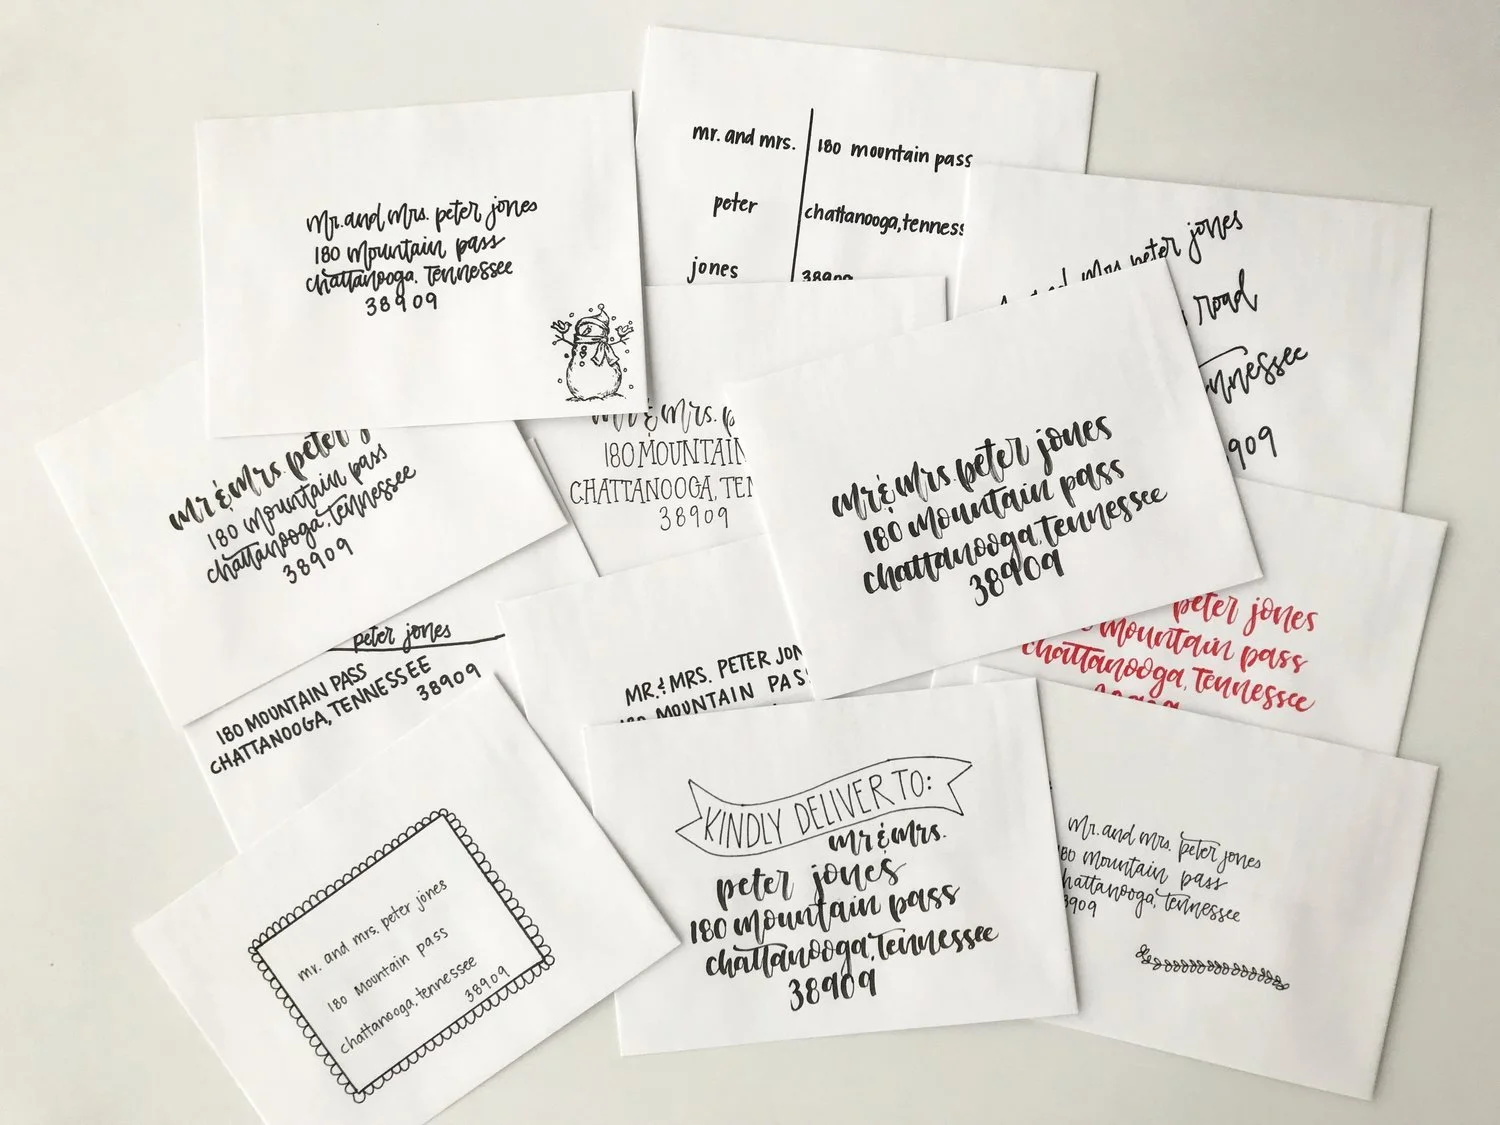 mr. and mrs. peter jones
180 mountain pass
chattanooga, tennessee
38909
mr. and mrs.
peter
jones
180 mountain pass
chattanooga, tenness
38909
mrs. peter jones
road
nnessee
909
mr & mrs. peter j
180 mountain pass
chattanooga, tennessee
38909
mr & mrs. p
180 MOUNTAIN
CHATTANOOGA, TEN
38909
mr & mrs. peter jones
180 mountain pass
chattanooga, tennessee
38909
peter jones
mountain pass
chattanooga, tennessee
peter jones
180 MOUNTAIN PASS
CHATTANOOGA, TENNESSEE
38909
MR. & MRS. PETER JON
180 MOUNTAIN PAS
mr. and mrs. peter jones
180 mountain pass
chattanooga, tennessee
38909
KINDLY DELIVER TO:
mr & mrs.
peter jones
180 mountain pass
chattanooga, tennessee
38909
mr. and mrs. peter jones
80 mountain pass
hattanooga, tennessee
8909